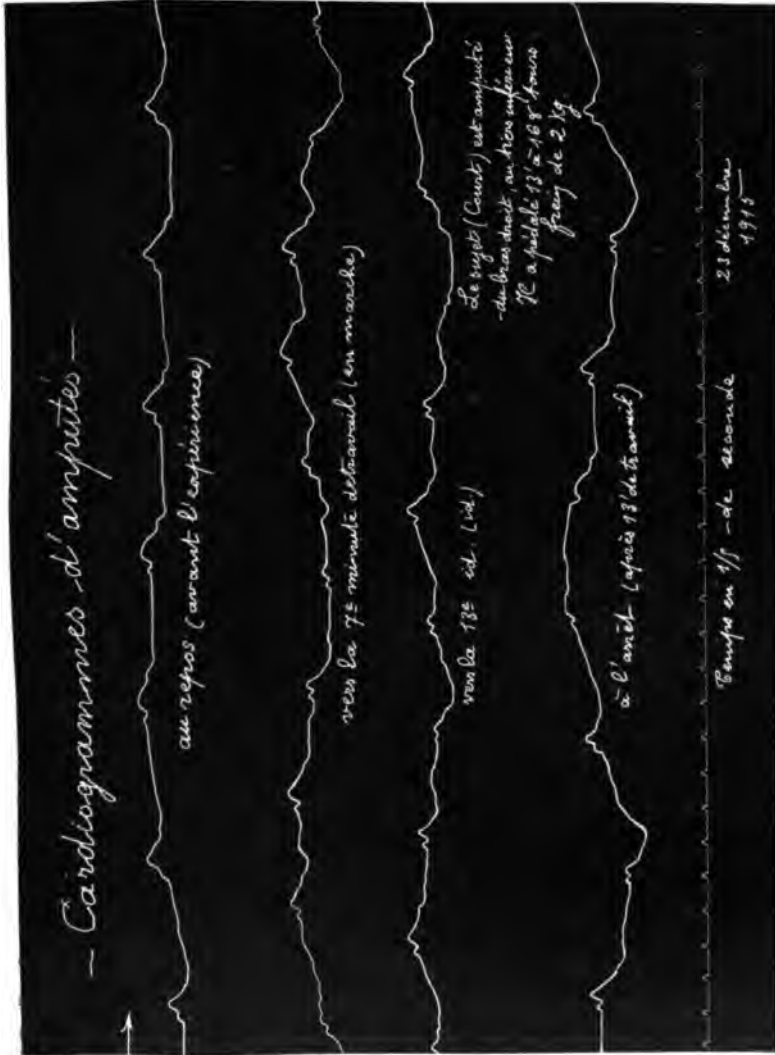 — Cardiogrammes d'amputés —
au repos (avant l'expérience)
vers la 7e minute de travail (en marche)
vers la 13e id. (id.)
Le sujet (Court) est amputé
du bras droit, au tiers inférieur
Il a pédalé 13' à 168 tours
frein de 2 Kg.
à l'arrêt (après 13' de travail)
Temps en 1/5 de seconde
23 décembre
1915